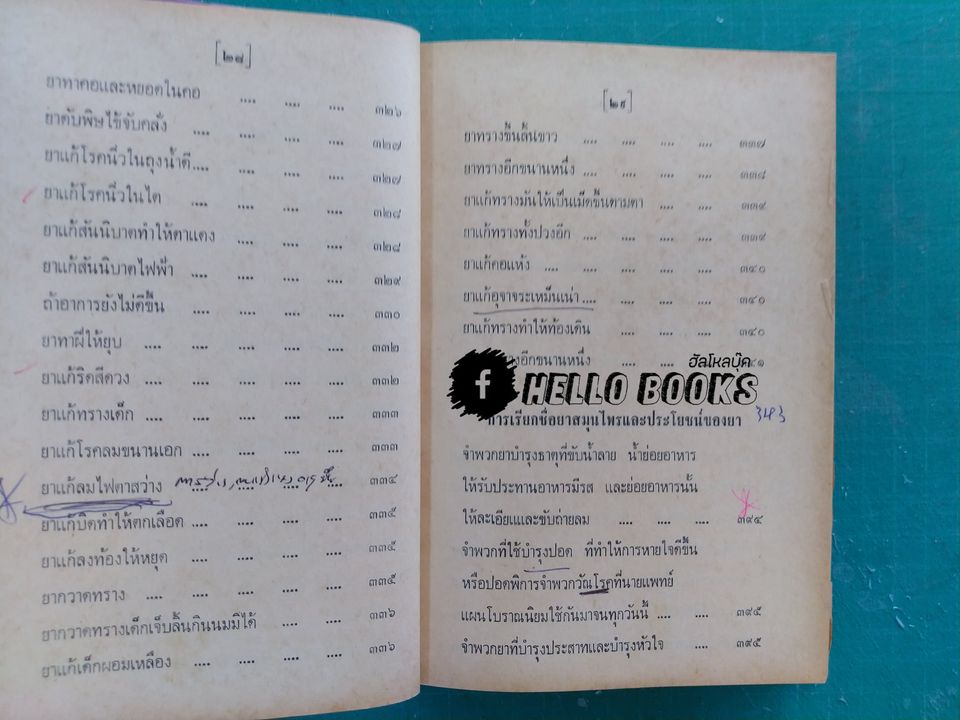 [๒๘]
ยาทาคอและหยอดในคอ .... .... .... ๓๒๖
ยาดับพิษไข้จับคลั่ง .... .... .... .... ๓๒๗
ยาแก้โรคนิ่วในถุงน้ำดี.... .... .... .... ๓๒๗
ยาแก้โรคนิ่วในไต .... .... .... .... ๓๒๘
ยาแก้สันนิบาตทำให้ตาแดง .... .... .... ๓๒๘
ยาแก้สันนิบาตไฟฟ้า .... .... .... .... ๓๒๙
ถ้าอาการยังไม่ดีขึ้น .... .... .... .... ๓๓๐
ยาทาฝีให้ยุบ .... .... .... .... ๓๓๒
ยาแก้ริดสีดวง .... .... .... .... ๓๓๒
ยาแก้ทรางเด็ก .... .... .... .... ๓๓๓
ยาแก้โรคลมขนานเอก .... .... .... .... ๓๓๓
ยาแก้ลมไฟตาสว่าง .... .... .... .... ๓๓๔
ยาแก้บิดทำให้ตกเลือด .... .... .... .... ๓๓๕
ยาแก้ลงท้องให้หยุด .... .... .... .... ๓๓๕
ยากวาดทราง .... .... .... .... ๓๓๕
ยากวาดทรางเด็กเจ็บลิ้นกินนมมิได้ .... .... ๓๓๖
ยาแก้เด็กผอมเหลือง .... .... .... .... ๓๓๖
[๒๙]
ยาทรางขึ้นลิ้นขาว .... .... .... .... ๓๓๗
ยาทรางอีกขนานหนึ่ง .... .... .... .... ๓๓๘
ยาแก้ทรางมันให้เป็นเม็ดขึ้นตามตา .... .... ๓๓๙
ยาแก้ทรางทั้งปวงอีก .... .... .... .... ๓๓๙
ยาแก้คอแห้ง .... .... .... .... .... ๓๔๐
ยาแก้อุจาจระเหม็นเน่า .... .... .... .... ๓๔๐
ยาแก้ทรางทำให้ท้องเดิน .... .... .... ๓๔๐
างอีกขนานหนึ่ง .... .... .... ๔๑
ฮัลโหลบุ๊ค
HELLO BOOKS
การเรียกชื่อยาสมุนไพรและประโยชน์ของยา ๓๔๓
จำพวกยาบำรุงธาตุที่ขับน้ำลาย น้ำย่อยอาหาร
ให้รับประทานอาหารมีรส และย่อยอาหารนั้น
ให้ละเอียและขับถ่ายลม .... .... .... ๓๙๔
จำพวกที่ใช้บำรุงปอด ที่ทำให้การหายใจดีขึ้น
หรือปอดพิการจำพวกวัณโรคที่นายแพทย์
แผนโบราณนิยมใช้กันมาจนทุกวันนี้ .... .... ๓๙๕
จำพวกยาที่บำรุงประสาทและบำรุงหัวใจ .... ๓๙๕